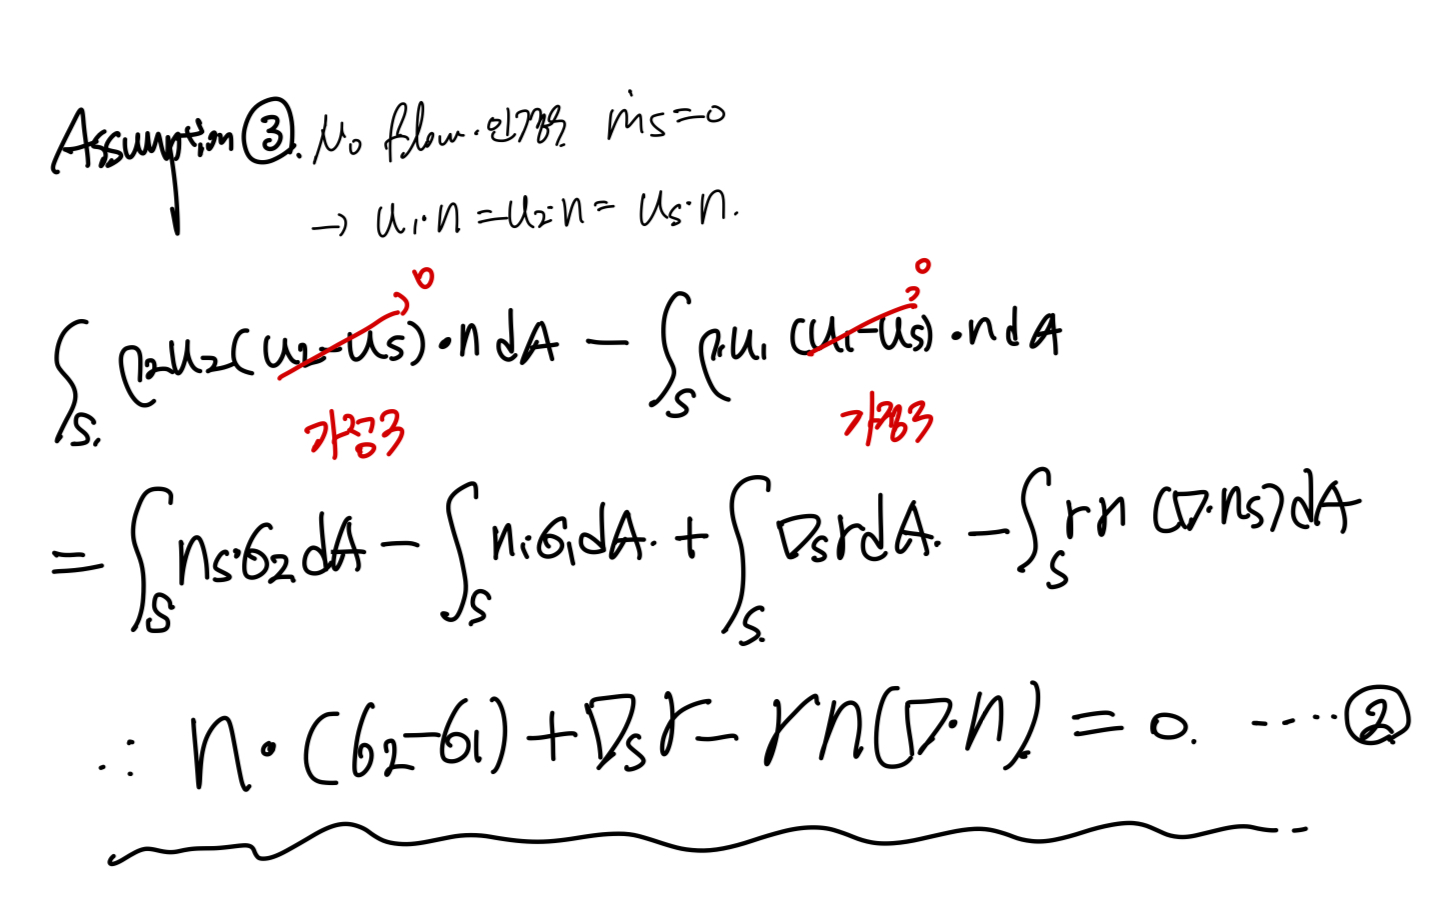 Assumption ③. No flow.인경우 ṁs=0
→ u₁·n = u₂·n = us·n.
0 0
∫s. ρ₂u₂(u₂-us)·n dA - ∫s ρ₁u₁(u₁-us)·n dA
가정3 가정3
= ∫s ns·σ₂ dA - ∫s n₁·σ₁ dA. + ∫s. ∇sγ dA. - ∫s γn (∇·ns) dA
∴ n·(σ₂-σ₁) + ∇sγ - γn(∇·n) = 0. ----··②